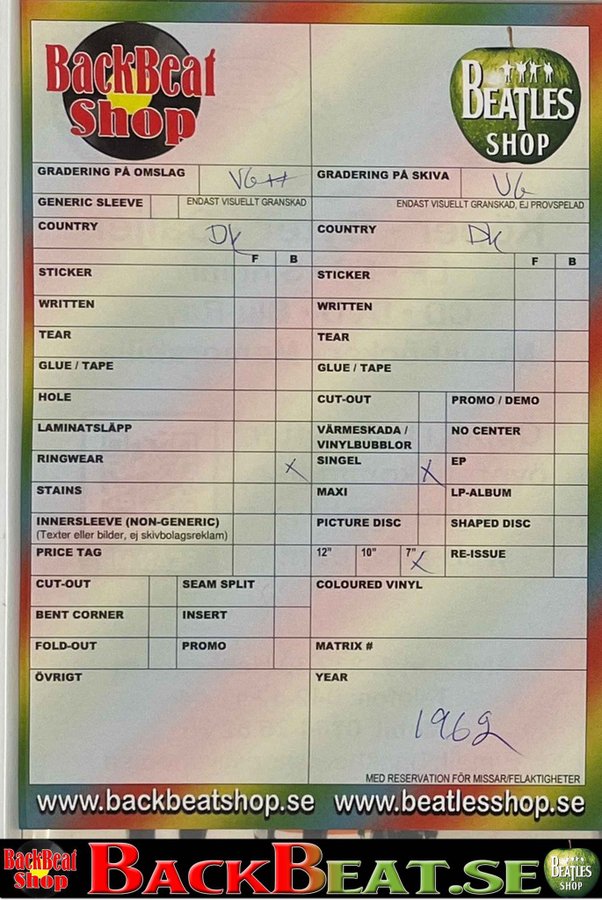 BackBeat
Shop
BEATLES
SHOP
GRADERING PÅ OMSLAG VG++
GRADERING PÅ SKIVA VG
GENERIC SLEEVE ENDAST VISUELLT GRANSKAD
ENDAST VISUELLT GRANSKAD, EJ PROVSPELAD
COUNTRY DK
COUNTRY DK
F B
F B
STICKER
STICKER
WRITTEN
WRITTEN
TEAR
TEAR
GLUE / TAPE
GLUE / TAPE
HOLE
CUT-OUT PROMO / DEMO
LAMINATSLÄPP
VÄRMESKADA /
VINYLBUBBLOR
NO CENTER
RINGWEAR X
SINGEL X EP
STAINS
MAXI LP-ALBUM
INNERSLEEVE (NON-GENERIC)
(Texter eller bilder, ej skivbolagsreklam)
PICTURE DISC SHAPED DISC
PRICE TAG
12" 10" 7" X RE-ISSUE
CUT-OUT SEAM SPLIT
COLOURED VINYL
BENT CORNER INSERT
FOLD-OUT PROMO
MATRIX #
ÖVRIGT
YEAR
1962
MED RESERVATION FÖR MISSAR/FELAKTIGHETER
www.backbeatshop.se www.beatlesshop.se
BackBeat
Shop
BACKBEAT.SE
BEATLES
SHOP